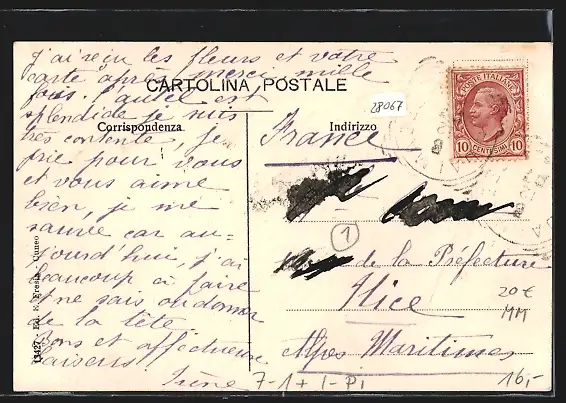 J'ai reçu les fleurs et votre
carte après merci mille
fois. L'autel est
splendide je suis
très contente, je
prie pour vous
et vous aime
bien, je me
sauve car au-
jourd'hui, j'ai
beaucoup à faire
et ne sais où donner
de la tête
Bons et affectueux
baisers.
Irène
CARTOLINA POSTALE
Corrispondenza
Indirizzo
28067
France
de la Préfecture
Nice
Alpes Maritimes
1
20€
MM
16,-
7-1+1-Pi
POSTE ITALIANE
10 CENTESIMI 10
13427 - Ed. E. Cuneo